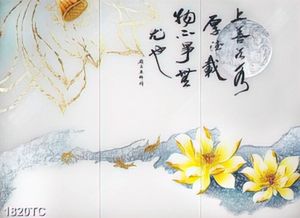 上善若水
厚德載
物不爭無
尤也
1820TC